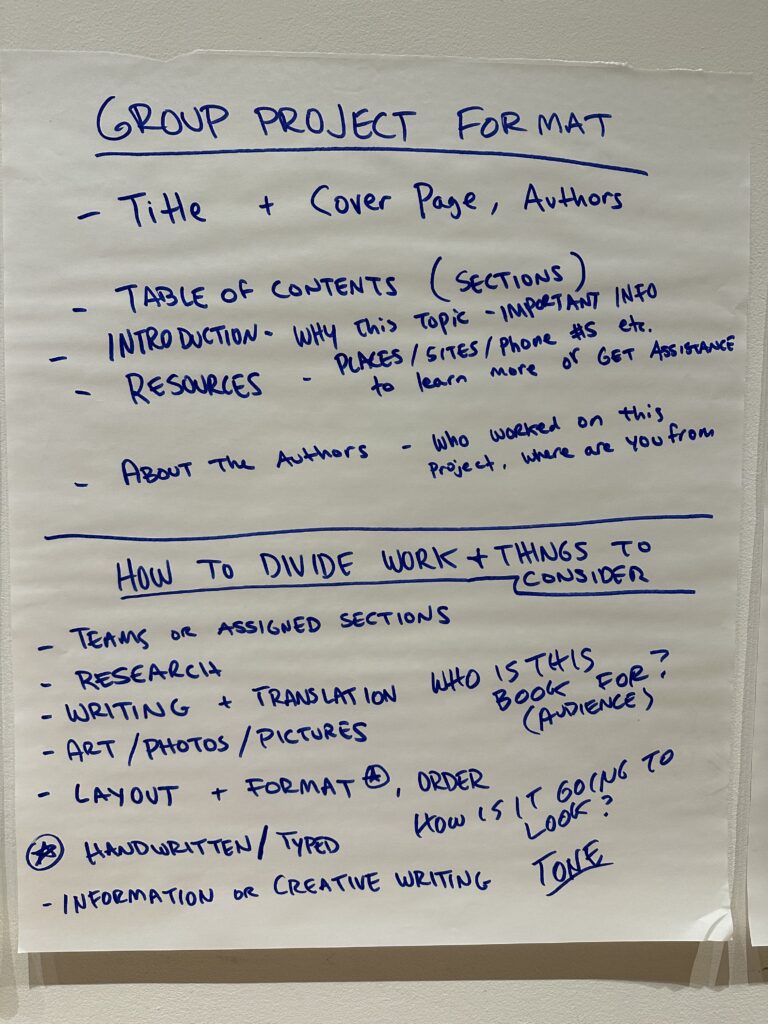 GROUP PROJECT FORMAT
- Title + Cover Page, Authors
- TABLE OF CONTENTS (SECTIONS)
- INTRODUCTION - WHY this TOPIC - IMPORTANT INFO
- RESOURCES - PLACES/SITES/Phone #S etc.
to learn more or GET ASSISTANCE
- ABOUT THE AUTHORS - Who worked on this
project, where are you from
HOW TO DIVIDE WORK + THINGS TO
CONSIDER
- TEAMS OR ASSIGNED SECTIONS
- RESEARCH
- WRITING + TRANSLATION
- ART/PHOTOS/PICTURES
WHO IS THIS
BOOK FOR?
(AUDIENCE)
- LAYOUT + FORMAT *, ORDER
HOW IS IT GOING TO
LOOK?
* HANDWRITTEN/TYPED
- INFORMATION OR CREATIVE WRITING
TONE